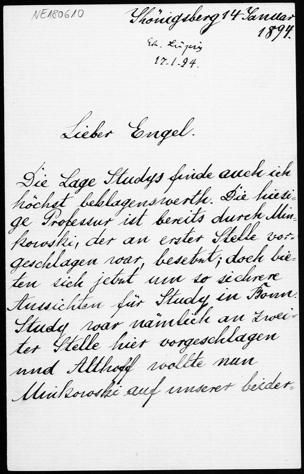 NE180610
Königsberg 14 Januar
1894.
Eh. Leipzig
17.1.94.
Lieber Engel.
Die Lage Studys finde auch ich
höchst beklagenswerth. Die hiesi-
ge Professur ist bereits durch Min-
kowski, der an erster Stelle vor-
geschlagen war, besetzt; doch bie-
ten sich jetzt um so sichrere
Aussichten für Study in Bonn.
Study war nämlich an zwei-
ter Stelle hier vorgeschlagen
und Althoff wollte nun
Minkowski auf unserer beider-